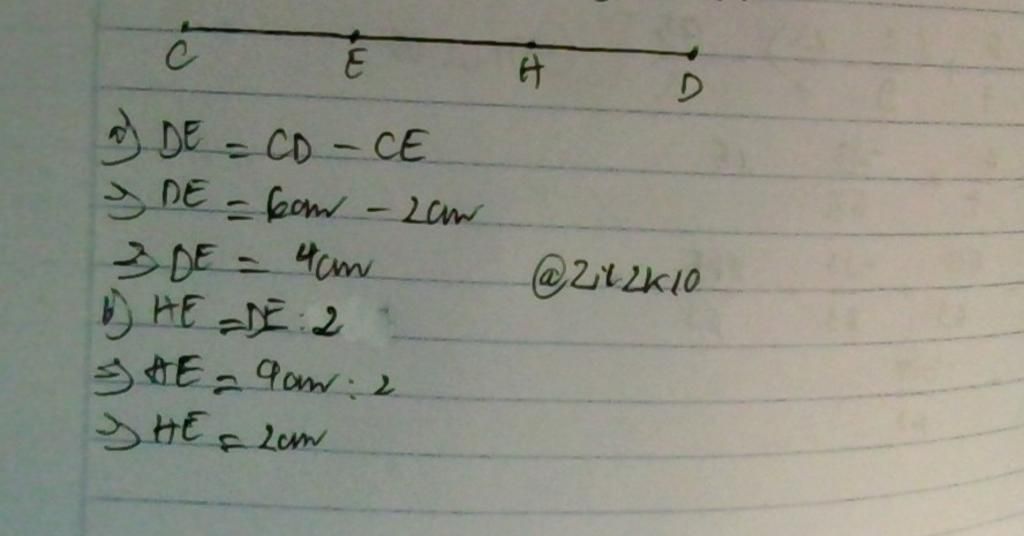 C E H D
a) DE = CD - CE
=> DE = 6cm - 2cm
=> DE = 4cm
@Zit2k10
b) HE = DE : 2
=> HE = 4cm : 2
=> HE = 2cm